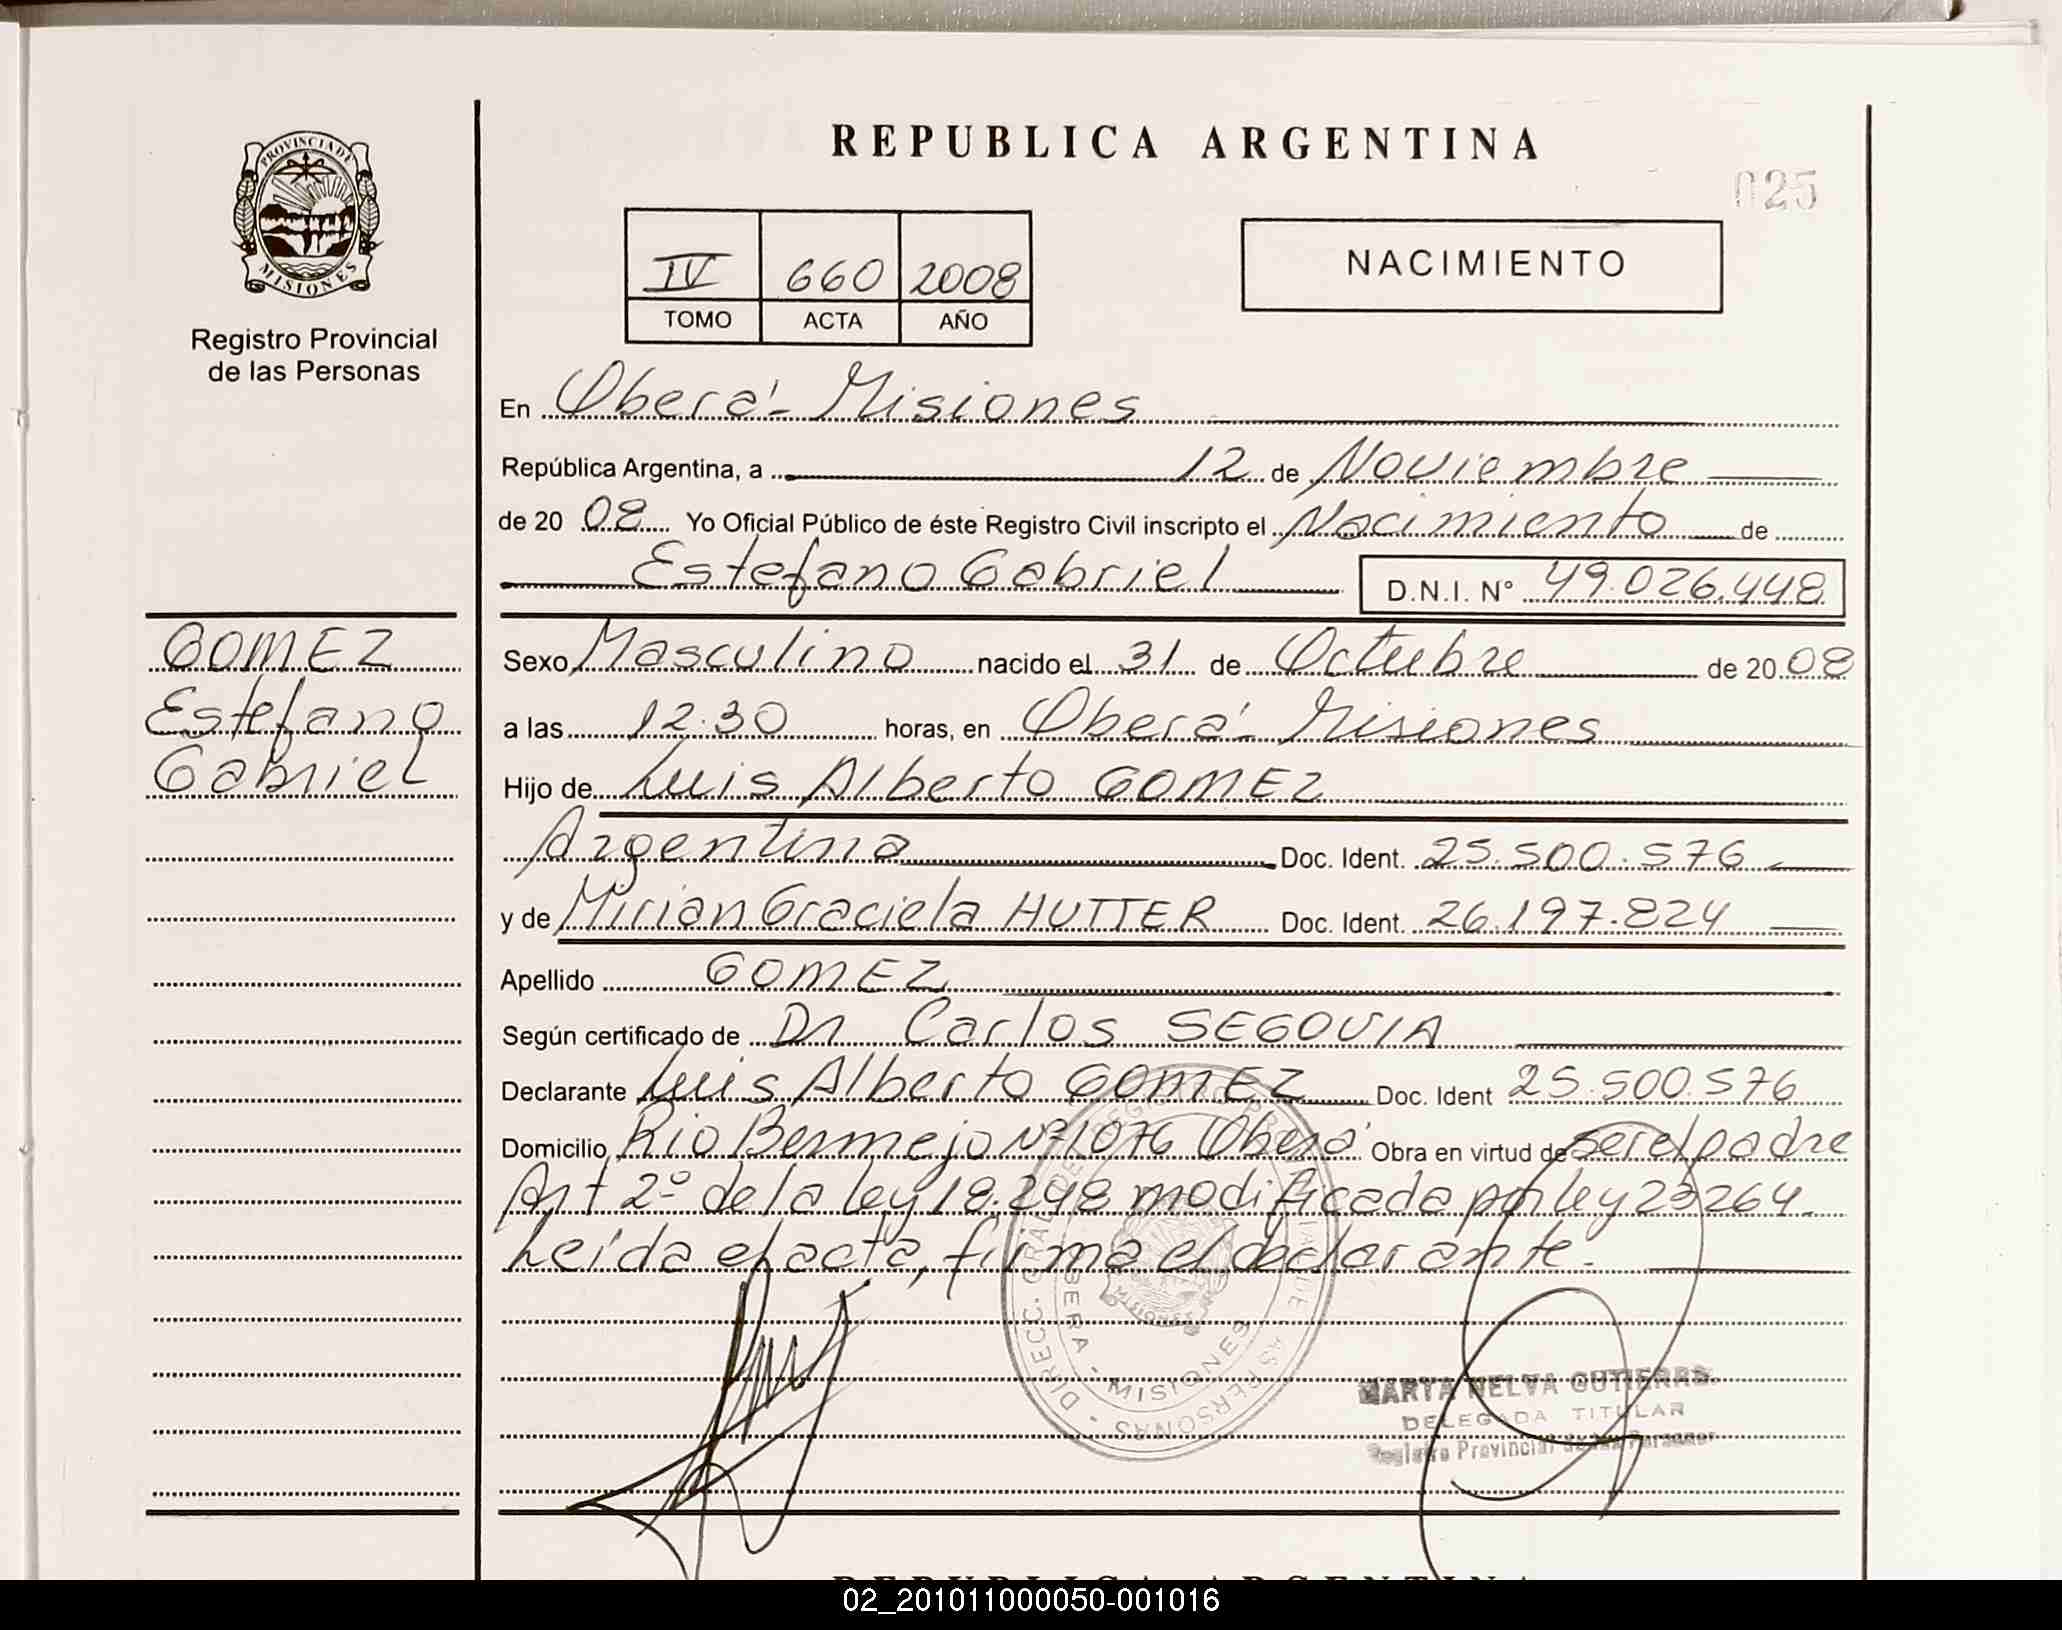 REPUBLICA ARGENTINA
025
PROVINCIA DE
MISIONES
Registro Provincial
de las Personas
IV 660 2008
TOMO ACTA AÑO
NACIMIENTO
En Oberá - Misiones
República Argentina, a 12 de Noviembre
de 20 08 Yo Oficial Público de éste Registro Civil inscripto el Nacimiento de
Estefano Gabriel D.N.I. Nº 49.026.448
GOMEZ
Estefano
Gabriel
Sexo Masculino nacido el 31 de Octubre de 20 08
a las 12.30 horas, en Oberá - Misiones
Hijo de Luis Alberto GOMEZ
Argentina Doc. Ident. 25.500.576
y de Mirian Graciela HUTTER Doc. Ident. 26.197.824
Apellido GOMEZ
Según certificado de Dr Carlos SEGOVIA
Declarante Luis Alberto GOMEZ Doc. Ident 25.500.576
Domicilio Rio Bermejo Nº 1076 Oberá Obra en virtud de ser el padre
Art 2º de la ley 18.248 modificada por ley 23264.
Leída el acta, firma el declarante.
DIRECC. GRAL. DE REGISTRO PROVINCIAL DE LAS PERSONAS
OBERA - MISIONES
MISIONES
MARTA NELVA GUTIERRS.
DELEGADA TITULAR
Registro Provincial de las Personas
REPUBLICA ARGENTINA
02_201011000050-001016